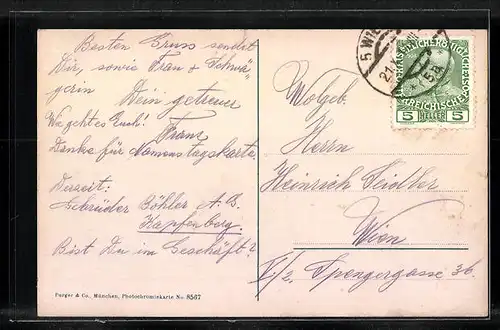 Besten Gruss sendet
Dir, sowie Frau & Schwä-
gerin
Dein getreuer
Wie geht es Euch! Franz
Danke für Namenstagskarte.
Derzeit:
Gebrüder Böhler A. G.
Kapfenberg.
Bist Du im Geschäft?
Purger & Co., München, Photochromiekarte No. 8567
Wolgeb.
Herrn
Heinrich Seidler
Wien
V/2, Spengergasse 36.
5 WIE
27
HELLER
5 5